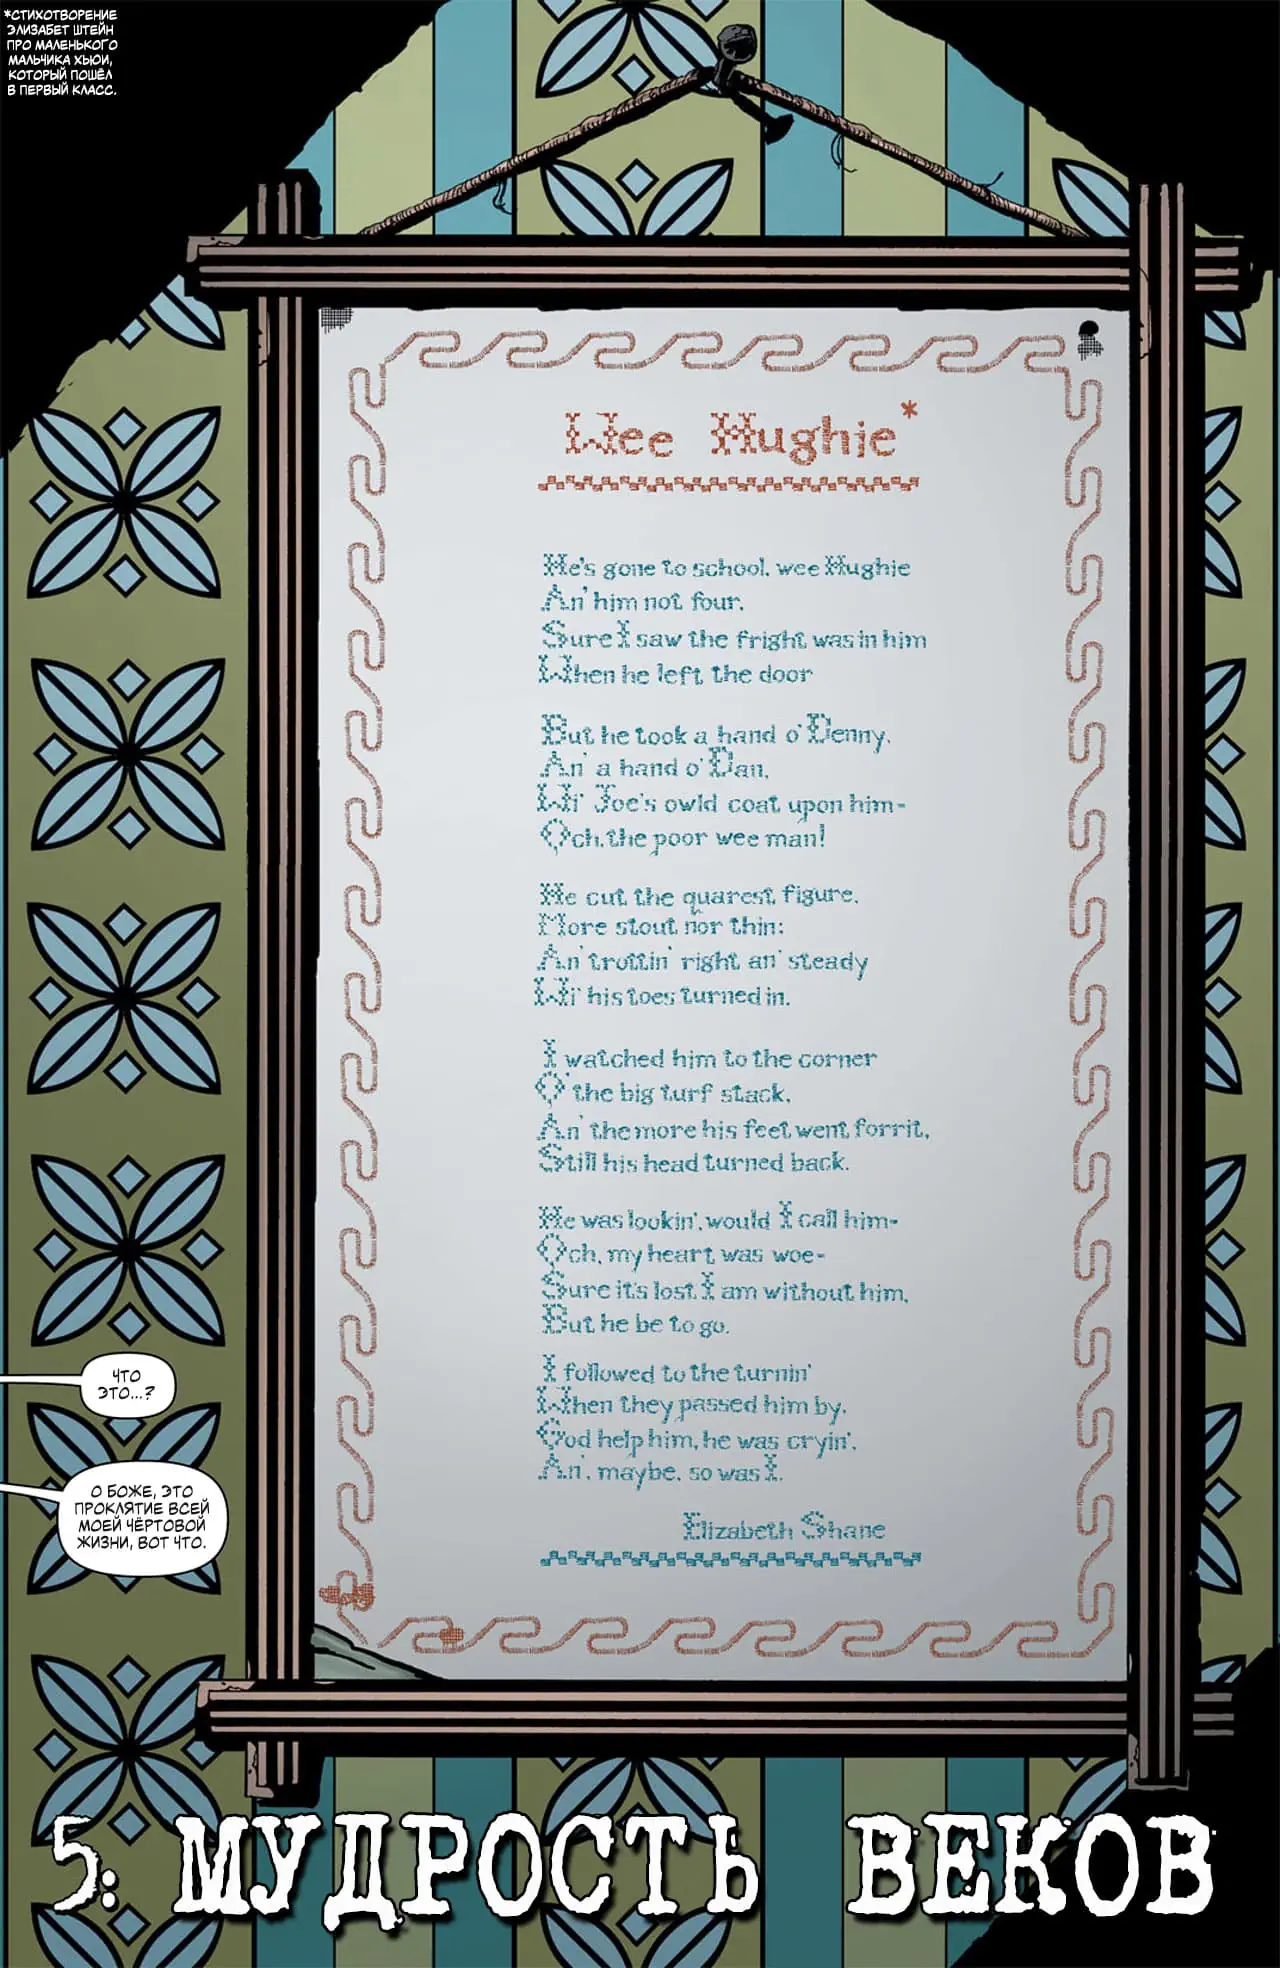 *СТИХОТВОРЕНИЕ
ЭЛИЗАБЕТ ШТЕЙН
ПРО МАЛЕНЬКОГО
МАЛЬЧИКА ХЬЮИ,
КОТОРЫЙ ПОШЁЛ
В ПЕРВЫЙ КЛАСС.
Wee Hughie*
He's gone to school, wee Hughie
An' him not four,
Sure I saw the fright was in him
When he left the door
But he took a hand o' Denny,
An' a hand o' Dan,
Wi' Joe's owld coat upon him-
Och, the poor wee man!
He cut the quarest figure,
More stout nor thin:
An' trottin' right an' steady
Wi' his toes turned in.
I watched him to the corner
O' the big turf stack,
An' the more his feet went forrit,
Still his head turned back.
He was lookin', would I call him-
Och, my heart was woe-
Sure it's lost I am without him,
But he be to go.
I followed to the turnin'
When they passed him by,
God help him, he was cryin',
An', maybe, so was I.
Elizabeth Shane
ЧТО
ЭТО...?
О БОЖЕ, ЭТО
ПРОКЛЯТИЕ ВСЕЙ
МОЕЙ ЧЁРТОВОЙ
ЖИЗНИ, ВОТ ЧТО.
5: МУДРОСТЬ ВЕКОВ